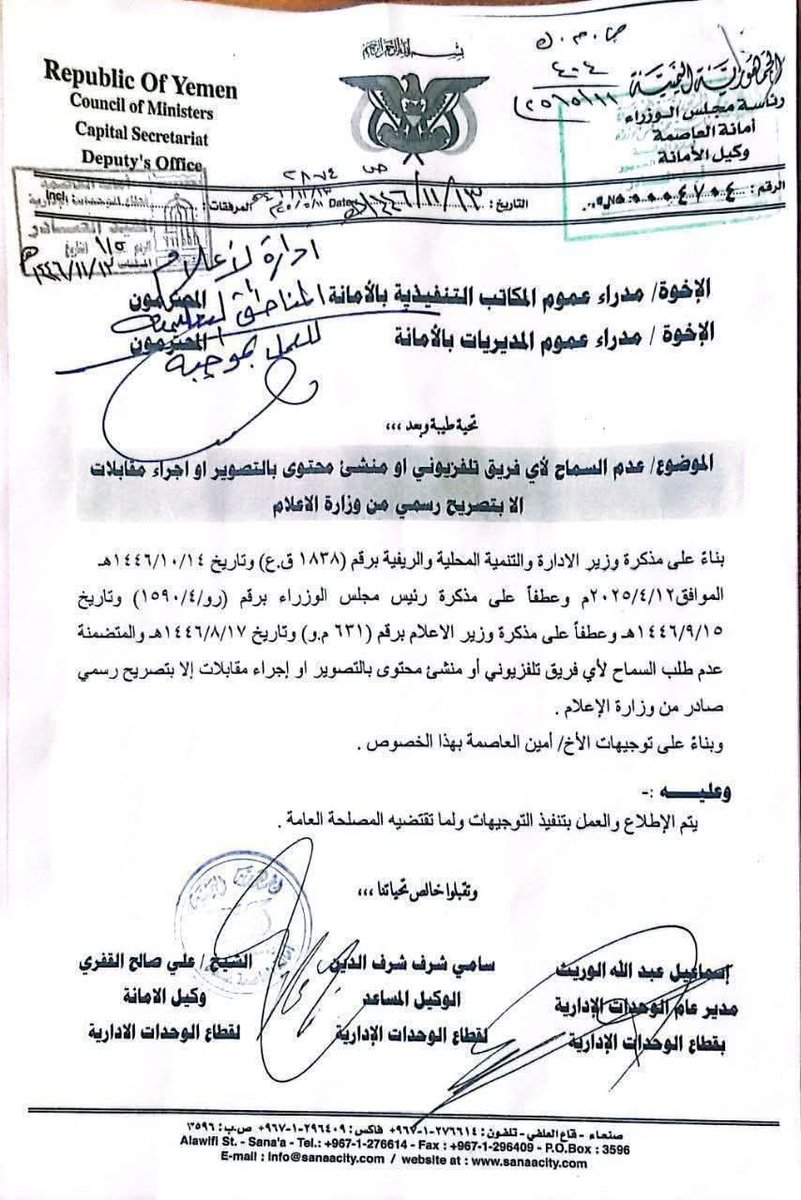 Republic Of Yemen
Council of Ministers
Capital Secretariat
Deputy's Office
بسم الله الرحمن الرحيم
الجمهورية اليمنية
رئاسة مجلس الوزراء
أمانة العاصمة
وكيل الأمانة
الرقم : ٠٠٠٤٧٠٤
التاريخ : ١٤٤٦/١١/١٣ Date
المرفقات :
١٤٤٦/١١/١٣
ادارة لأعلام
المناطق التعليمية
للعمل بموجبة
الإخوة/ مدراء عموم المكاتب التنفيذية بالأمانة المحترمون
الإخوة / مدراء عموم المديريات بالأمانة المحترمون
تحية طيبة وبعد ,,,
الموضوع/ عدم السماح لأي فريق تلفزيوني او منشئ محتوى بالتصوير او اجراء مقابلات
الا بتصريح رسمي من وزارة الاعلام
بناءً على مذكرة وزير الادارة والتنمية المحلية والريفية برقم (١٨٣٨ ق.ع) وتاريخ ١٤٤٦/١٠/١٤هـ
الموافق٢٠٢٥/٤/١٢م وعطفاً على مذكرة رئيس مجلس الوزراء برقم (رو/١٥٩٠/٤) وتاريخ
١٤٤٦/٩/١٥هـ وعطفاً على مذكرة وزير الاعلام برقم (٦٣١ م.و) وتاريخ ١٤٤٦/٨/١٧هـ والمتضمنة
عدم طلب السماح لأي فريق تلفزيوني أو منشئ محتوى بالتصوير او إجراء مقابلات إلا بتصريح رسمي
صادر من وزارة الإعلام .
وبناءً على توجيهات الأخ/ أمين العاصمة بهذا الخصوص .
وعليـــــه :-
يتم الإطلاع والعمل بتنفيذ التوجيهات ولما تقتضيه المصلحة العامة .
وتقبلوا خالص تحياتنا ,,,
إسماعيل عبد الله الوريث
مدير عام الوحدات الإدارية
بقطاع الوحدات الإدارية
سامي شرف شرف الدين
الوكيل المساعد
لقطاع الوحدات الإدارية
الشيخ / علي صالح القفري
وكيل الامانة
لقطاع الوحدات الادارية
صنعاء - قاع العلفي - تلفون : ٢٧٦٦١٤-١-٩٦٧+ فاكس : ٢٩٦٤٠٩-١-٩٦٧+ ص.ب : ٣٥٩٦
Alawifi St. - Sana'a - Tel.: +967-1-276614 - Fax : +967-1-296409 - P.O.Box : 3596
E-mail : info@sanaacity.com / website at : www.sanaacity.com